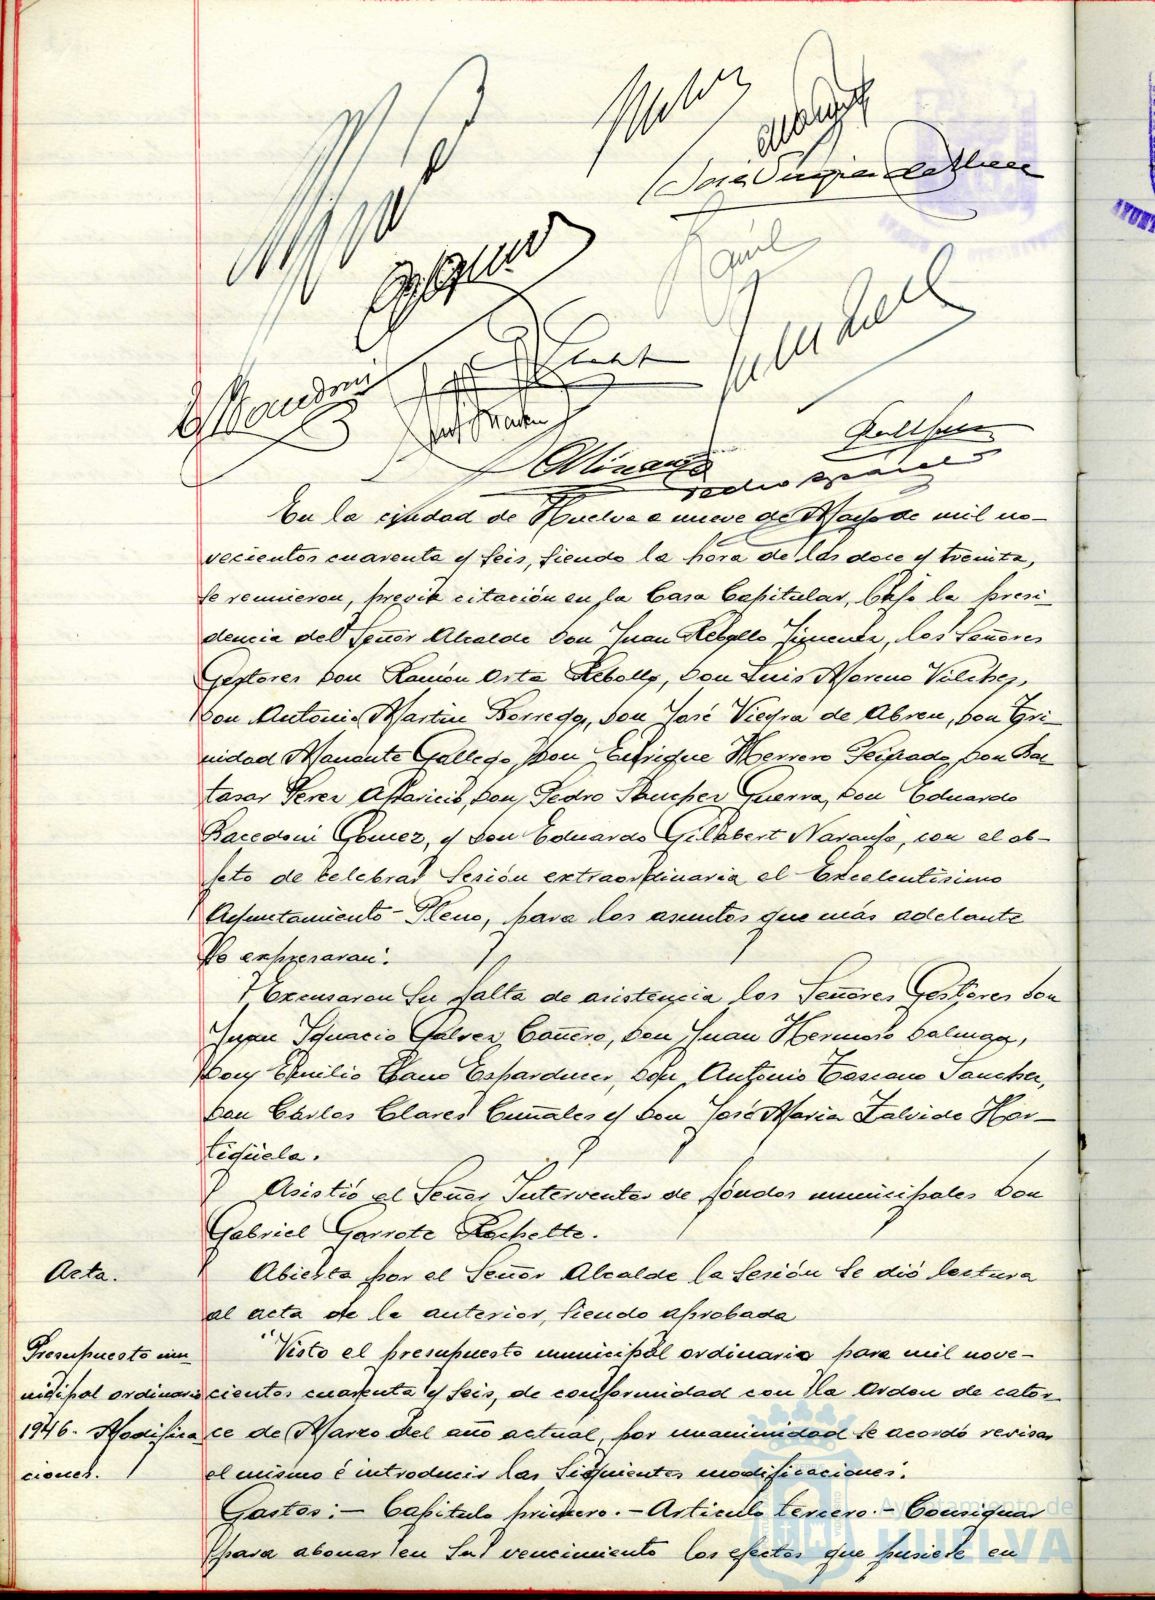 José Viegra de Abreu
En la ciudad de Huelva a nueve de Mayo de mil no-
vecientos cuarenta y seis, siendo la hora de las doce y treinta,
se reunieron, previa citación en la Casa Capitular, bajo la presi-
dencia del Señor Alcalde Don Juan Rebollo Jimenez, los Señores
Gestores Don Ramón Orta Rebollo, Don Luis Moreno Vilchez,
Don Antonio Martin Borrego, Don José Viegra de Abreu, Don Tri-
nidad Manante Gallego, Don Enrique Herrero Don Bal-
tasar Perez Aparicio, Don Pedro Sanchez Guerra, Don Eduardo
Bacedoni Gómez, y Don Eduardo Gilabert Naranjo, con el ob-
jeto de celebrar Sesión extraordinaria el Excelentísimo
Ayuntamiento-Pleno, para los asuntos que más adelante
se expresaran.
Excusaron su falta de asistencia los Señores Gestores Don
Juan Ignacio Galvez Cañero, Don Juan Hermoso Dalmao,
Don Emilio Cano Esparducer, Don Antonio Toscano Sanchez,
Don Cárlos Clares Cumales y Don José Maria Zalvide Hor-
tigüela.
Asistió el Señor Interventor de fondos municipales Don
Gabriel Garrote Rochette.
Acta.
Abierta por el Señor Alcalde la Sesión se dió lectura
al acta de la anterior, siendo aprobada
Presupuesto mu-
nicipal ordinario
1946. Modifica
ciones.
Visto el presupuesto municipal ordinario para mil nove-
cientos cuarenta y seis, de conformidad con la Orden de cator-
ce de Marzo del año actual, por unanimidad se acordó revisar
el mismo é introducir las siguientes modificaciones.
Gastos:- Capitulo primero.- Articulo tercero.- Consignar
para abonar en su vencimiento los efectos que pusiese en
Ayuntamiento de
HUELVA